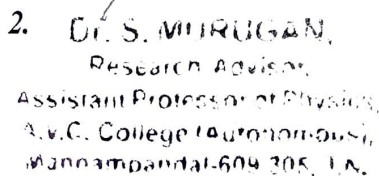 2. Dr. S. MURUGAN,
Research Advisor,
Assistant Professor of Physics,
A.V.C. College (Autonomous),
Mannampandal-609 305, T.N.